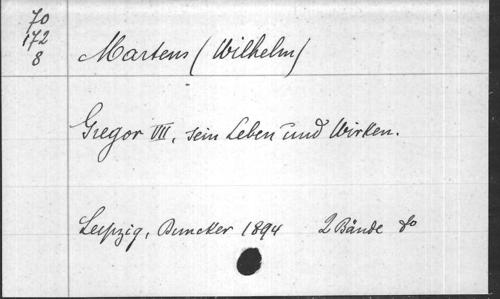 70
172
8
Martens (Wilhelm)
Gregor VII, sein Leben und Wirken.
Leipzig, Duncker 1894 2 Bände 8o